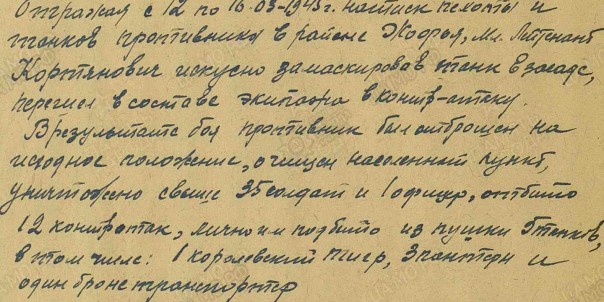 Отражая с 12 по 16.03-1945г. натиск пехоты и
танков противника в районе Жофья, Мл. Лейтенант
Кортянович искусно замаскировав танк в засаде,
перешел в составе экипажа в контр-атаку.
В результате боя противник был отброшен на
исходное положение, очищен населенный пункт,
уничтожено свыше 35 солдат и 1 офицер, отбито
12 контратак, лично им подбито из пушки танков,
в том числе: 1 королевский тигр, 3 пантеры и
один бронетранспортер